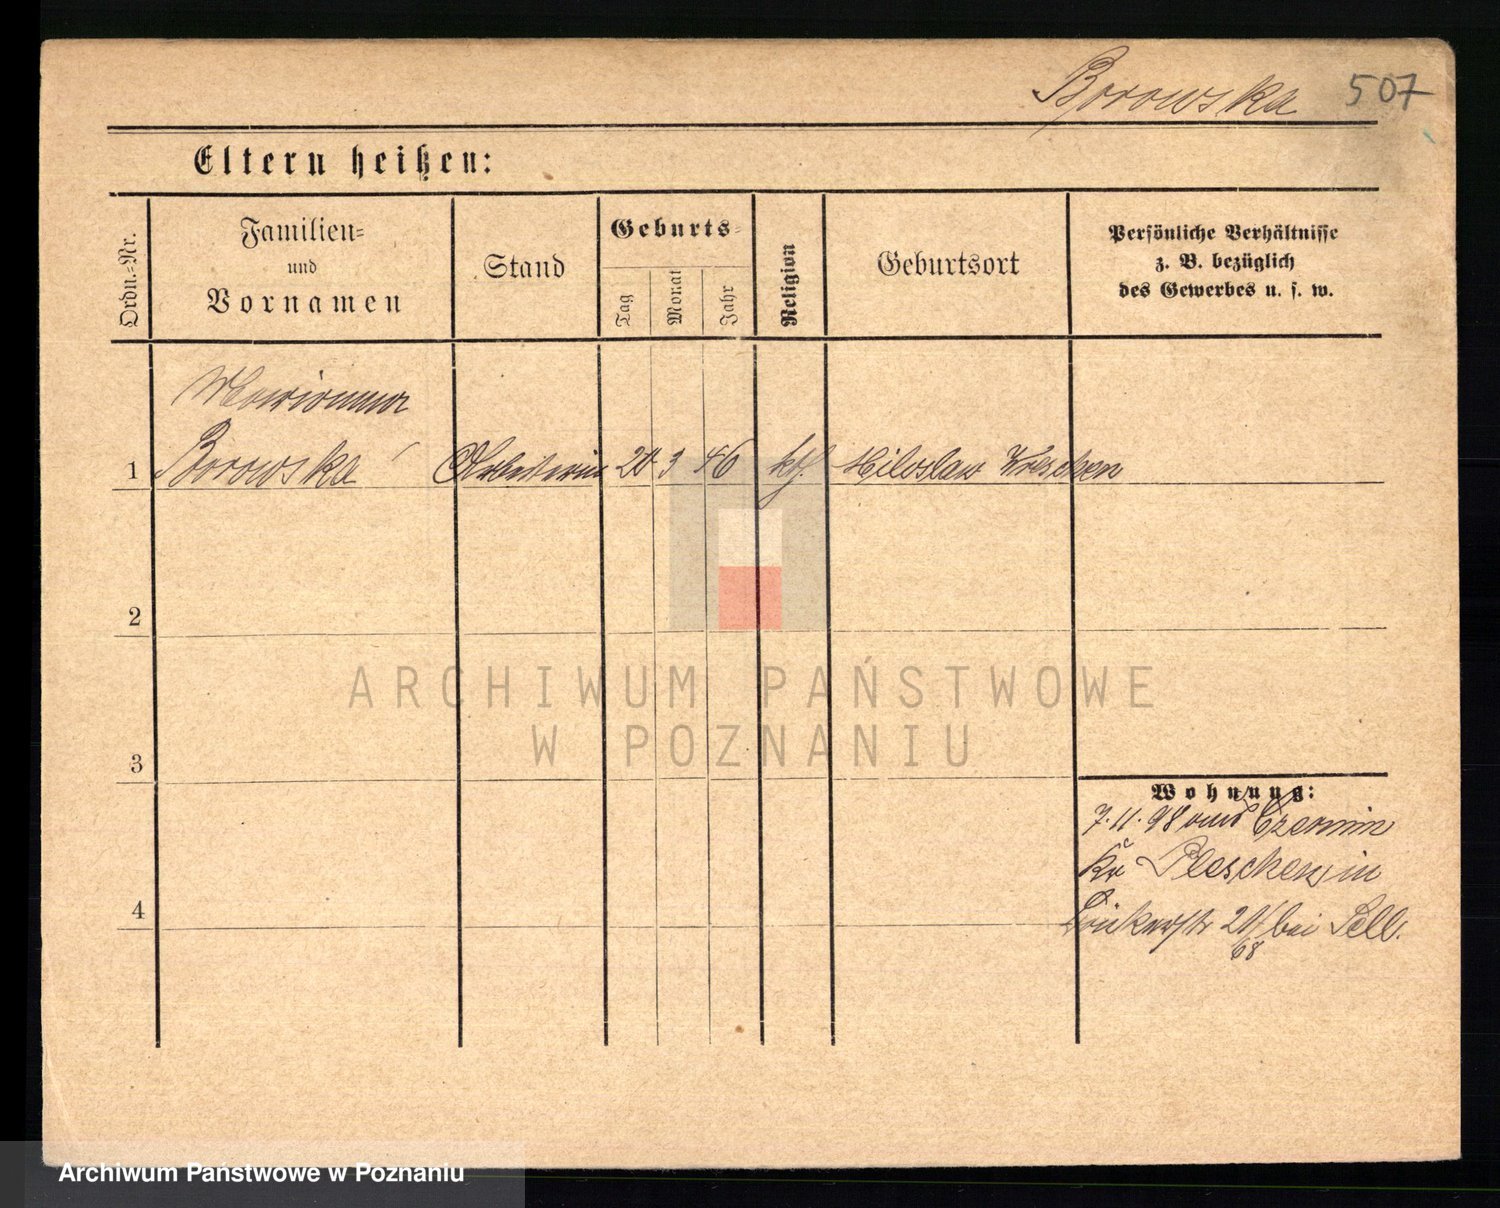 Borowska 507
Eltern heißen:
Ordn.-Nr.
Familien-
und
Vornamen
Stand
Geburts-
Tag
Monat
Jahr
Religion
Geburtsort
Persönliche Verhältnisse
z. B. bezüglich
des Gewerbes u. s. w.
Marianna
1 Borowska Arbeiterin 20 3 46 kth. Miloslaw Wreschen
2
3
4
Wohnung:
7.11.98 aus Czermin
Kr Pleschen, in
20/68 bei
ARCHIWUM PAŃSTWOWE
W POZNANIU
Archiwum Państwowe w Poznaniu